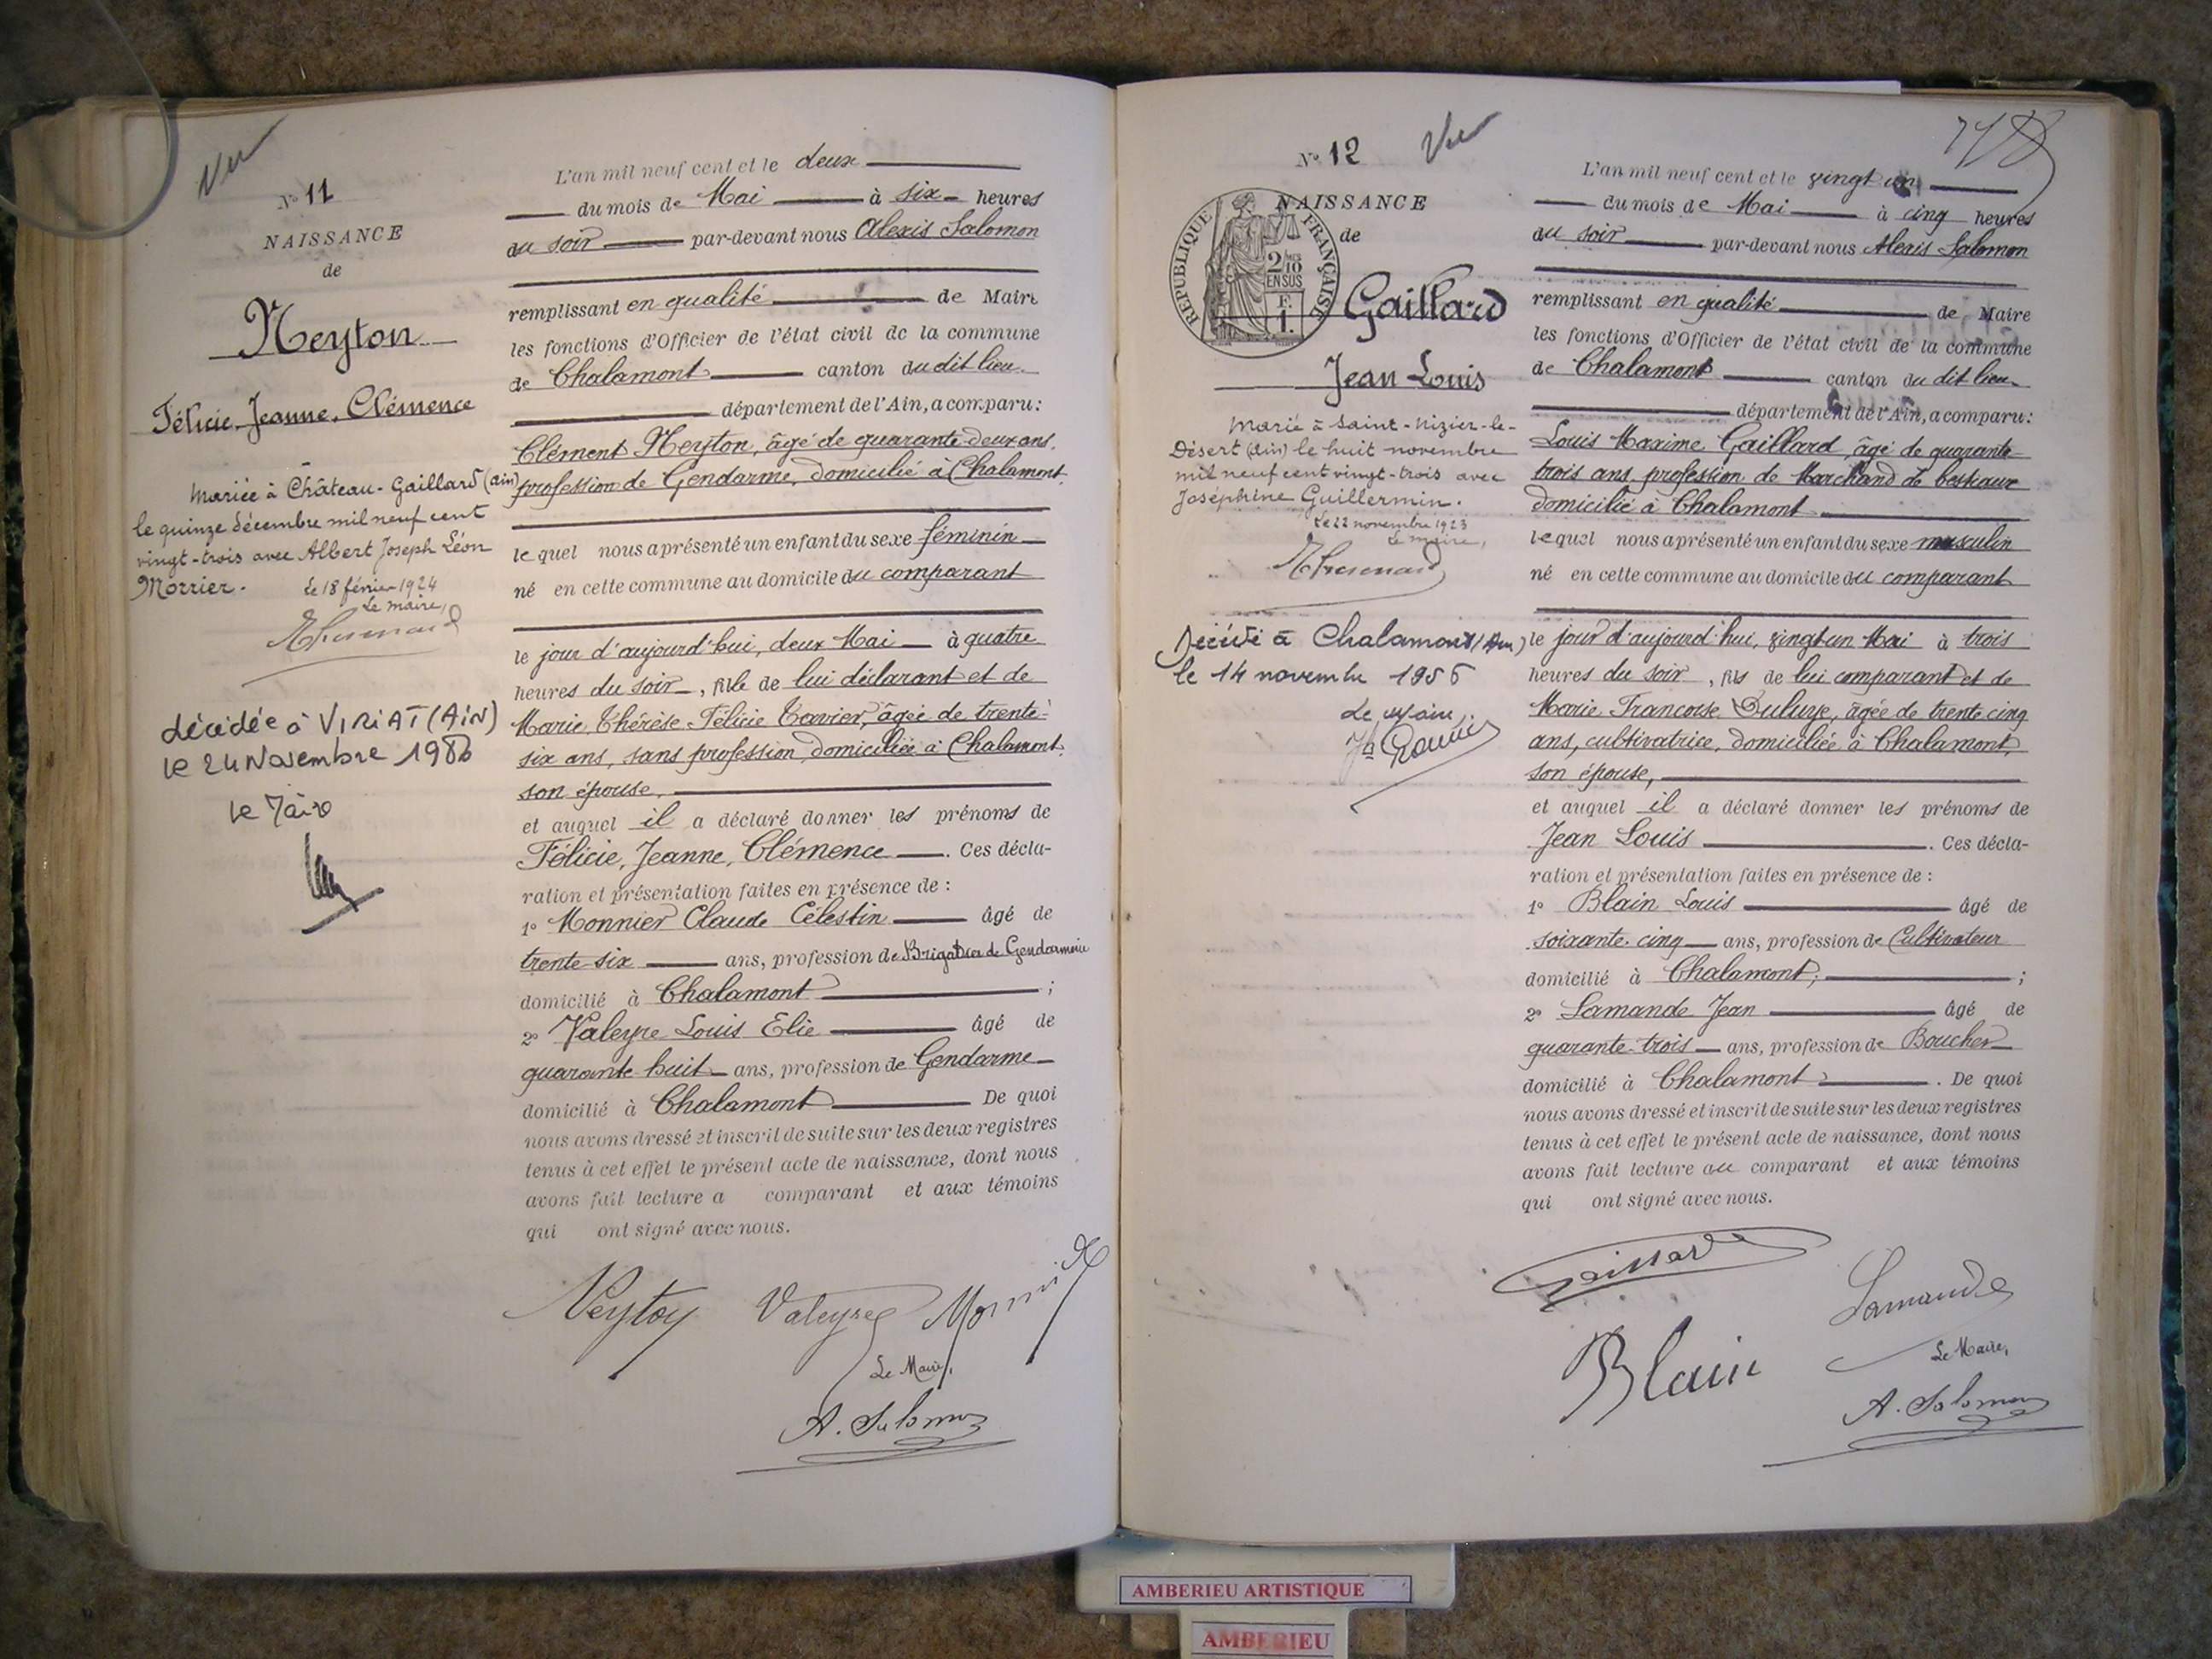 Vu
N° 11
NAISSANCE
de
Neyton
Félicie, Jeanne, Clémence
Mariée à Château-Gaillard (ain)
le quinze décembre mil neuf cent
vingt-trois avec Albert Joseph Léon
Morrier.
Le 18 février 1924
Le maire,
décédée à VIRIAT (AIN)
le 24 Novembre 1980
le Maire
L'an mil neuf cent et le deux
du mois de Mai à six heures
du soir par-devant nous Alexis Salomon
remplissant en qualité de Maire
les fonctions d'Officier de l'état civil de la commune
de Chalamont canton du dit lieu
département de l'Ain, a comparu:
Clément Neyton, âgé de quarante-deux ans,
profession de Gendarme, domicilié à Chalamont,
lequel nous a présenté un enfant du sexe féminin
né en cette commune au domicile du comparant
le jour d'aujourd'hui, deux Mai à quatre
heures du soir, fille de lui déclarant et de
Marie Thérèse Félicie Tavier, âgée de trente-
six ans, sans profession, domiciliée à Chalamont,
son épouse,
et auquel il a déclaré donner les prénoms de
Félicie, Jeanne, Clémence. Ces décla-
ration et présentation faites en présence de :
1° Monnier Claude Célestin âgé de
trente-six ans, profession de Brigadier de Gendarmerie
domicilié à Chalamont ;
2° Valeyre Louis Elie âgé de
quarante-huit ans, profession de Gendarme
domicilié à Chalamont De quoi
nous avons dressé et inscrit de suite sur les deux registres
tenus à cet effet le présent acte de naissance, dont nous
avons fait lecture a comparant et aux témoins
qui ont signé avec nous.
Neyton Valeyre Monnier
Le Maire,
A. Salomon
N° 12
Vu
NAISSANCE
de
RÉPUBLIQUE FRANÇAISE
2/10
EN SUS
F.
1.
Gaillard
Jean Louis
Marié à Saint-Nizier-le-
Désert (ain) le huit novembre
mil neuf cent vingt-trois avec
Joséphine Guillermin.
Le 22 novembre 1923
Le maire,
Décédé à Chalamont (Ain)
le 14 novembre 1956
Le Maire,
L'an mil neuf cent et le vingt un
du mois de Mai à cinq heures
du soir par-devant nous Alexis Salomon
remplissant en qualité de Maire
les fonctions d'Officier de l'état civil de la commune
de Chalamont canton du dit lieu
département de l'Ain, a comparu:
Louis Maxime Gaillard, âgé de quarante-
trois ans, profession de Marchand de bestiaux
domicilié à Chalamont
lequel nous a présenté un enfant du sexe masculin
né en cette commune au domicile du comparant
le jour d'aujourd'hui, vingt un Mai à trois
heures du soir, fils de lui comparant et de
Marie Françoise, âgée de trente cinq
ans, cultivatrice, domiciliée à Chalamont,
son épouse,
et auquel il a déclaré donner les prénoms de
Jean Louis. Ces décla-
ration et présentation faites en présence de :
1° Blain Louis âgé de
soixante-cinq ans, profession de Cultivateur
domicilié à Chalamont, ;
2° Lamande Jean âgé de
quarante-trois ans, profession de Boucher
domicilié à Chalamont. De quoi
nous avons dressé et inscrit de suite sur les deux registres
tenus à cet effet le présent acte de naissance, dont nous
avons fait lecture au comparant et aux témoins
qui ont signé avec nous.
Gaillard
Lamande
Blain
Le Maire,
A. Salomon
AMBERIEU ARTISTIQUE
AMBERIEU